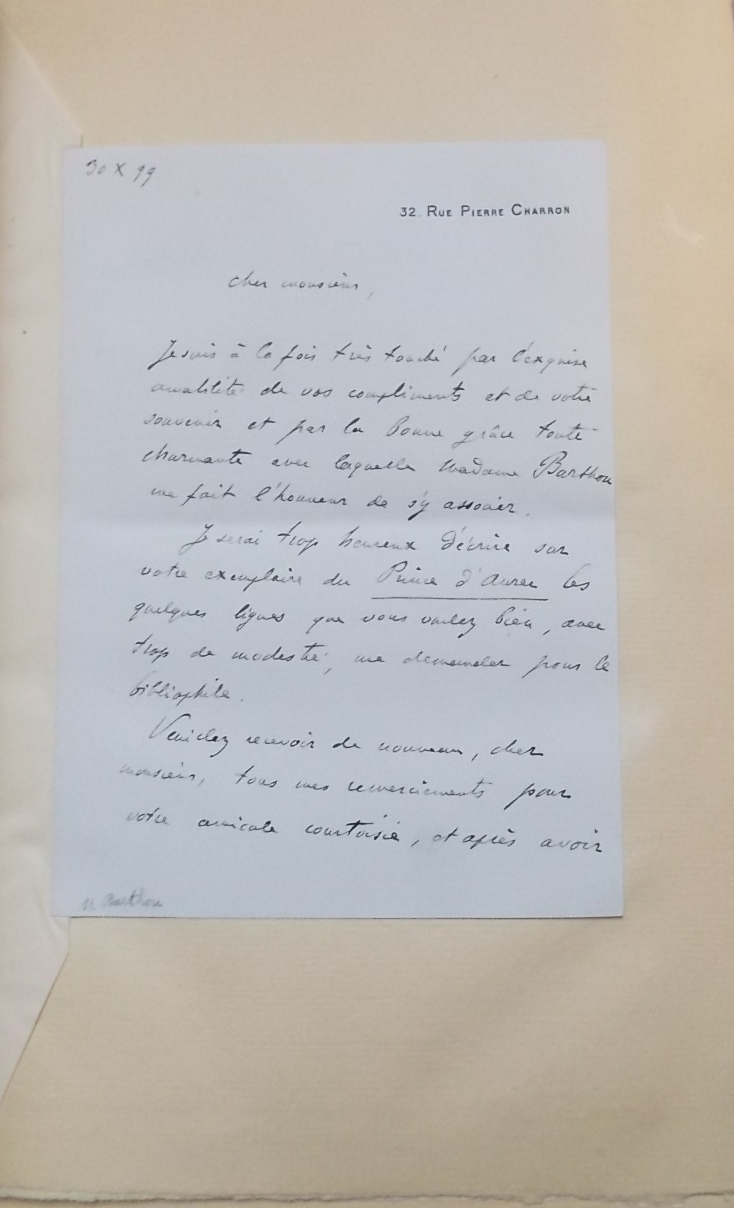 30 X 99
32. RUE PIERRE CHARRON
cher monsieur,
Je suis à la fois très touché par l'exquise
amabilité de vos compliments et de votre
souvenir et par la bonne grâce toute
charmante avec laquelle Madame Barthou
me fait l'honneur de s'y associer.
Je serai trop heureux d'écrire sur
votre exemplaire du Prince d'Aurec les
quelques lignes que vous voulez bien, avec
trop de modestie, me demander pour le
bibliophile.
Veuillez recevoir de nouveau, cher
monsieur, tous mes remerciements pour
votre amicale courtoisie, et après avoir
M Barthou